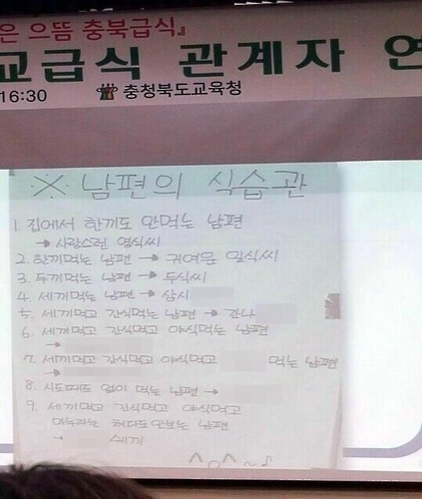 은 으뜸 충북급식』
교급식 관계자 연
16:30 충청북도교육청
※ 남편의 식습관
1. 집에서 한끼도 안먹는 남편
→ 사랑스런 영식씨
2. 한끼먹는 남편 → 귀여운 일식씨
3. 두끼먹는 남편 → 두식씨
4. 세끼먹는 남편 → 삼시
5. 세끼먹고 간식먹는 남편 → 간나
6. 세끼먹고 간식먹고 야식먹는 남편
→
7. 세끼먹고 간식먹고 야식먹고 먹는 남편
→
8. 시도때도 없이 먹는 남편 →
9. 세끼먹고 간식먹고 야식먹고
마누라는 쳐다도 안보는 남편
→ 세끼
^o^~♪